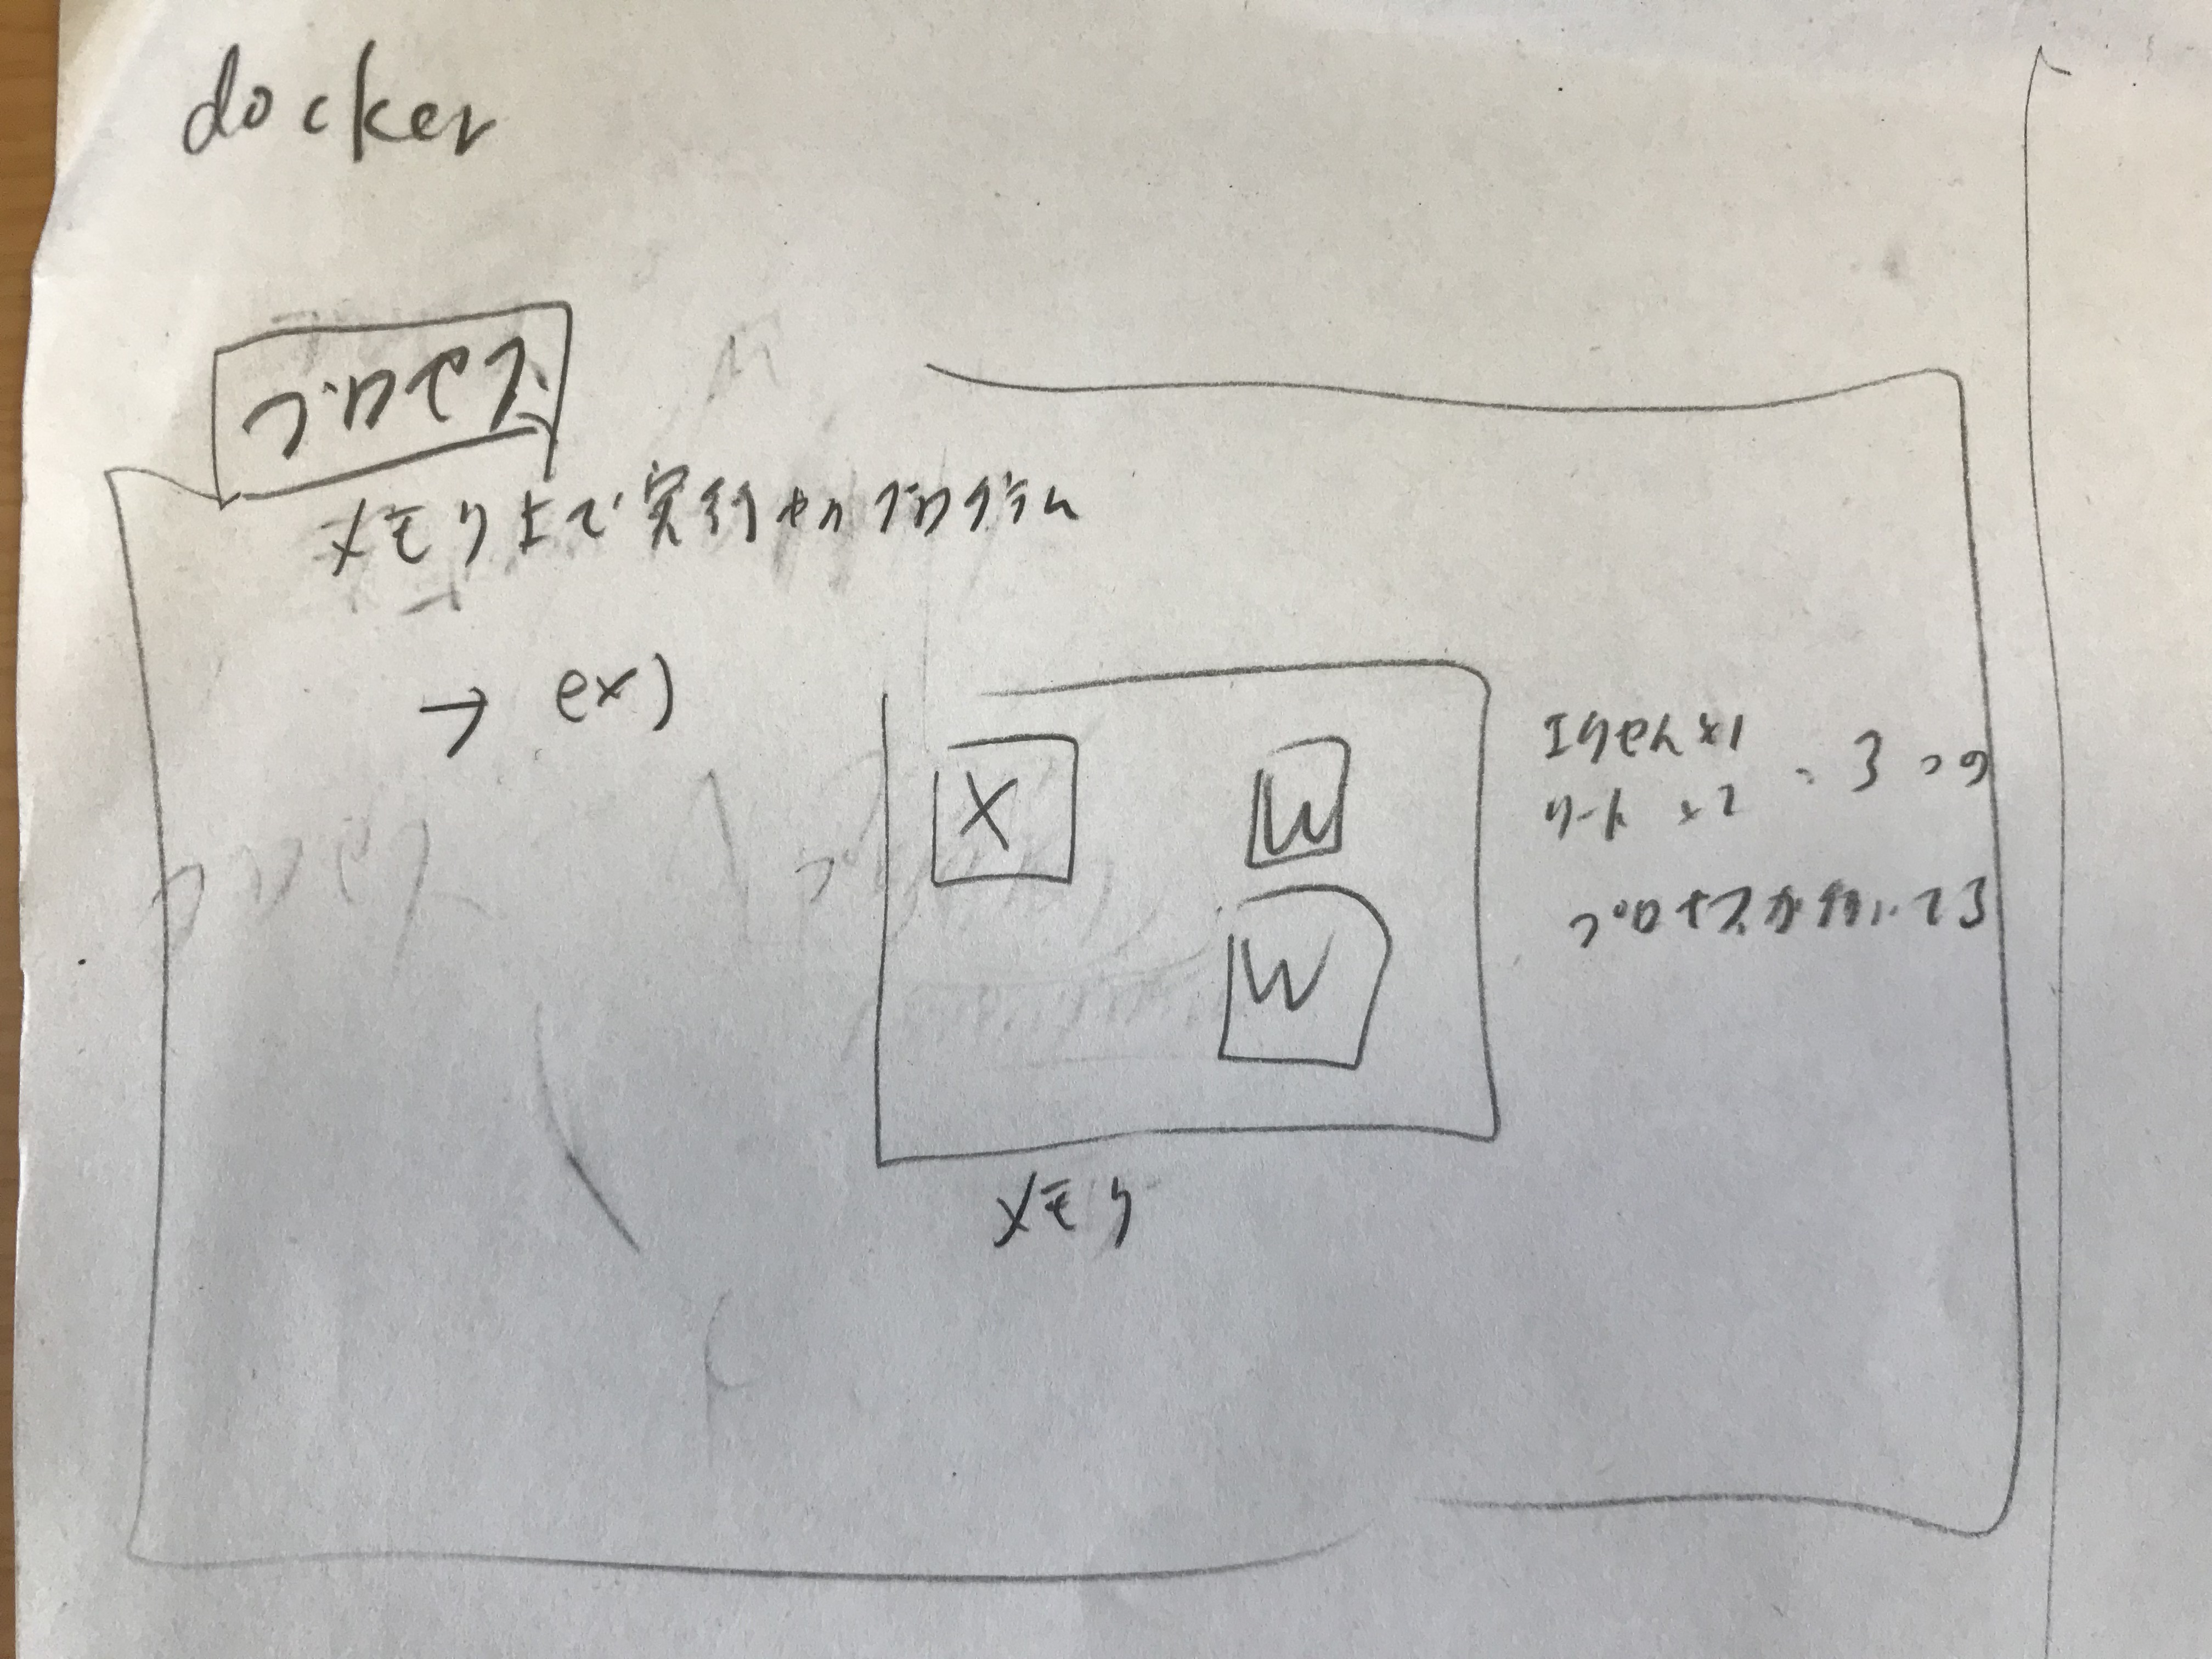 docker
プロセス
メモリ上で実行せれプログラム
→ ex)
X
W
W
エクセル×1
ワード ×2
、3つの
プロセスが動いてる
メモリ